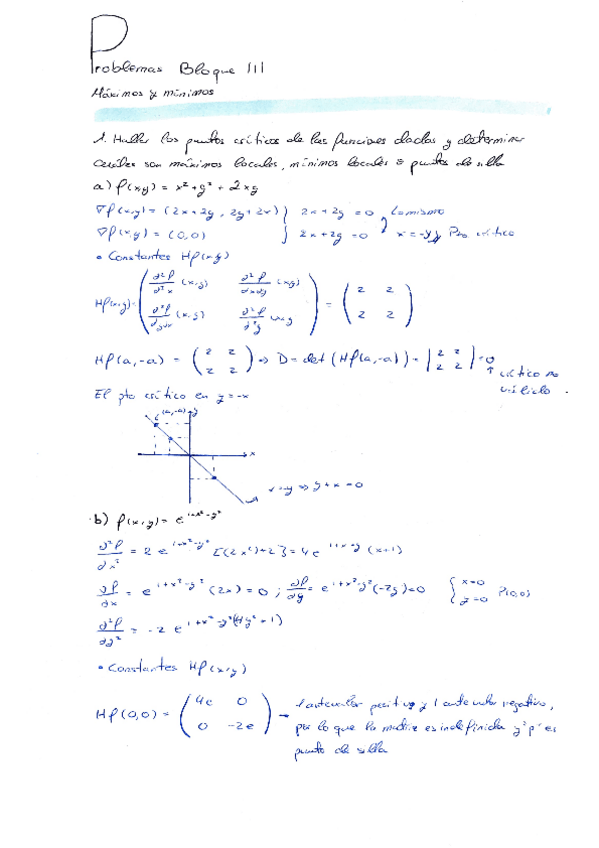 Problemas Bloque III
Máximos y mínimos
1. Hallar los puntos críticos de las funciones dadas y determinar
cuáles son máximos locales, mínimos locales o puntos de silla
a) f(x,y) = x² + y² + 2xy
∇f(x,y) = (2x+2y, 2y+2x) } 2x+2y=0 } Lo mismo
∇f(x,y) = (0,0) } 2x+2y=0 } x=-y Pto crítico
• Constantes Hf(x,y)
Hf(x,y) = ( ∂²f/∂²x (x,y) ∂²f/∂x∂y (x,y) ; ∂²f/∂y∂x (x,y) ∂²f/∂²y (x,y) ) = ( 2 2 ; 2 2 )
Hf(a,-a) = ( 2 2 ; 2 2 ) ⇒ D = det (Hf(a,-a)) = | 2 2 ; 2 2 | = 0
↑ crítico no
válido.
El pto crítico en y=-x
(a,-a) y
x
x=-y ⇒ y+x=0
b) f(x,y) = e^(1+x²-y²)
∂f/∂x = e^(1+x²-y²) (2x) = 0 ; ∂f/∂y = e^(1+x²-y²) (-2y) = 0 { x=0 ; y=0 P(0,0)
• Constantes Hf(x,y)
Hf(0,0) = ( 4e 0 ; 0 -2e ) → 1 autovalor positivo y 1 autovalor negativo,
por lo que la matriz es indefinida y "p" es
punto de silla